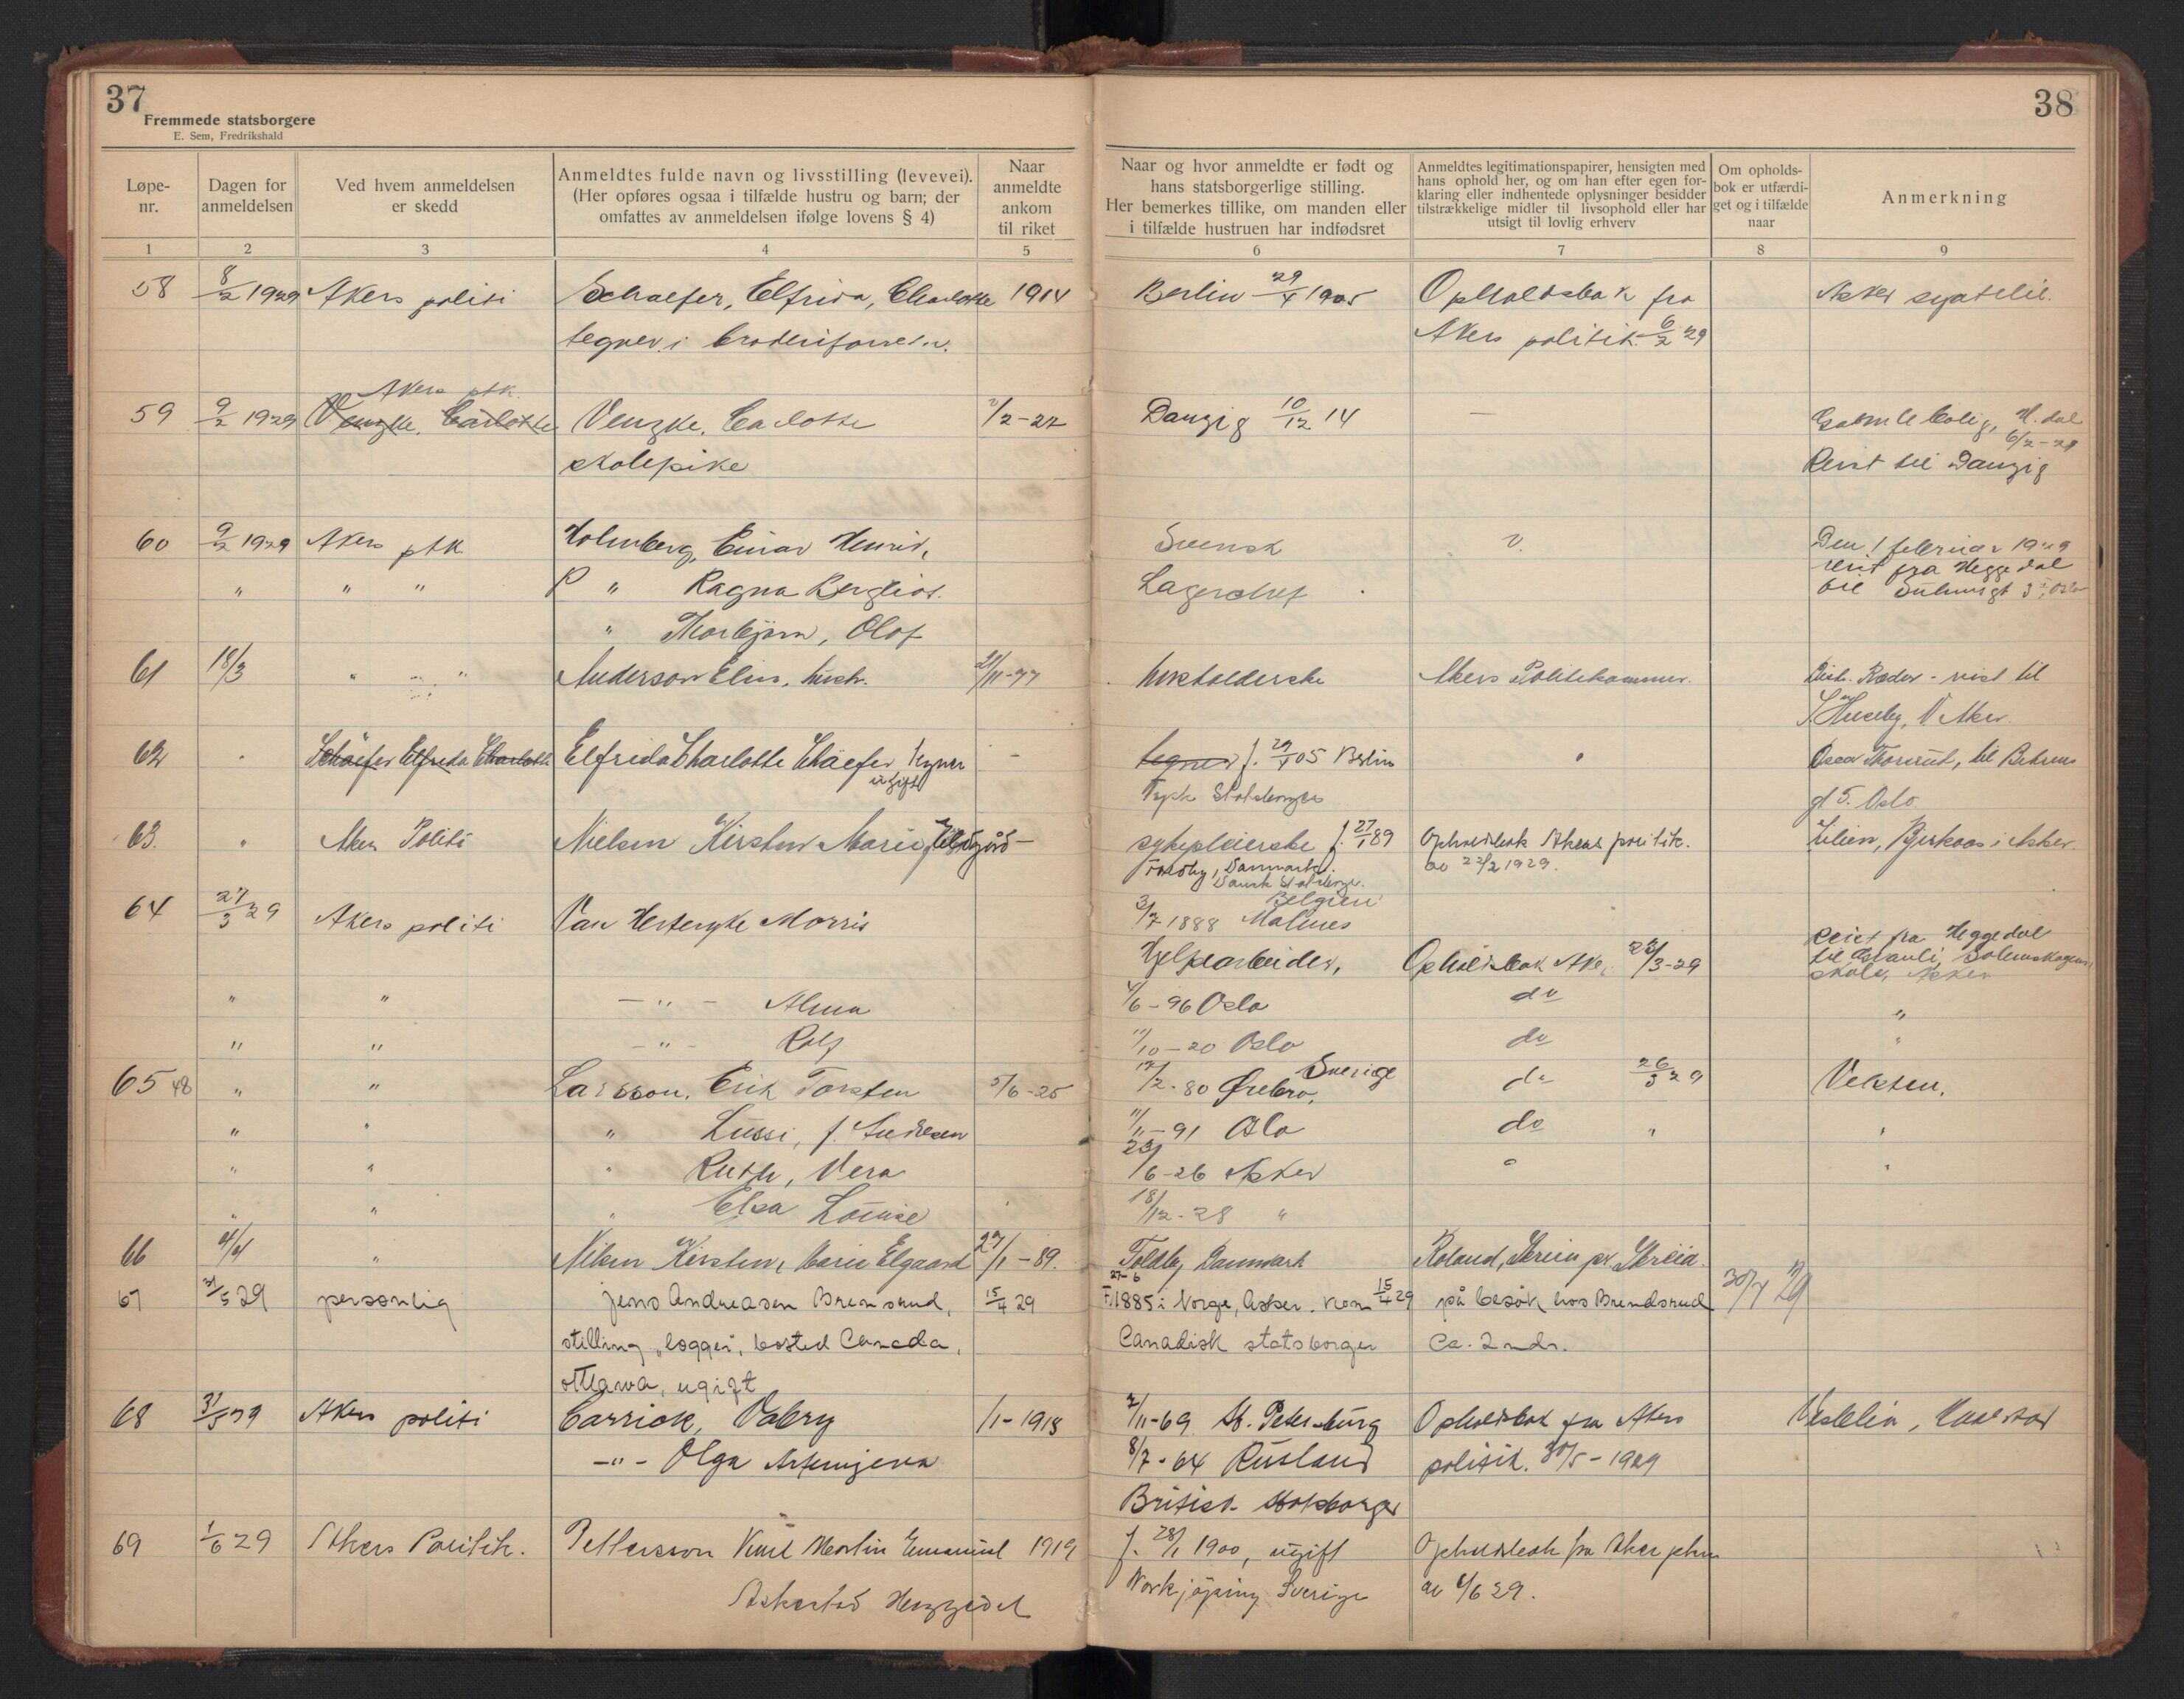 37
Fremmede statsborgere
E. Sem, Fredrikshald
38
Løpe-
nr.
Dagen for
anmeldelsen
Ved hvem anmeldelsen
er skedd
Anmeldtes fulde navn og livsstilling (levevei).
(Her opføres ogsaa i tilfælde hustru og barn; der
omfattes av anmeldelsen ifølge lovens § 4)
Naar
anmeldte
ankom
til riket
Naar og hvor anmeldte er født og
hans statsborgerlige stilling.
Her bemerkes tillike, om manden eller
i tilfælde hustruen har indfødsret
Anmeldtes legitimationspapirer, hensigten med
hans ophold her, og om han efter egen for-
klaring eller indhentede oplysninger besidder
tilstrækkelige midler til livsophold eller har
utsigt til lovlig erhverv
Om opholds-
bok er utfærdi-
get og i tilfælde
naar
Anmerkning
1 2 3 4 5 6 7 8 9
58 8/2 1929 Akers politi Schaefer, Elfrida, Charlotte 1914 Berlin 29/4 1905 Opholdsbok fra
tegner i broderiforretn. Akers politik 6/2 29
Akers ptk.
59 9/2 1929 Venzke, Carlotte Venzke, Carlotte 2/2-27 Danzig 10/12 14 — Gamle bolig, H.dal
6/2-29
skolepike Reist til Danzig
60 9/2 1929 Akers ptk Holmberg, Einar Henrik, Svensk Den 1 februar 1929
reist fra Heggedal
" " " " Ragna Bergliot. Lagerchef til
" Thorbjørn, Olof
61 18/3 " " Anderson Elin, hush. 21/11-27 husholderske Akers Politikammer. Dist. Røder - reist til
Huseby, V Aker.
62 " Schäefer Elfrida Charlotte Elfrida Charlotte Schäefer tegner — tegner f. 29/4 05 Berlin " Oscar Thorrud, til Behrens
ugift
Tysk Statsborger gt 5. Oslo
63. " Aker Politi Nielsen Kirsten Marie sykepleierske f. 27/1 89 Opholdsbok Akers politik. Lilien, Bjerkaas i Asker.
Foldby, Danmark. av 22/2 1929.
Dansk Statsborge.
64 27/3 29 Akers politi Van Hertenryke Morris 3/7 1888 Malines Belgien
Hjelpearbeider, Opholdsbok Aker 23/3-29 Reist fra Heggedal
til Solemskogens
skole, Asker
" " — " — Alma 4/6-96 Oslo do "
" " — " — Rolf 11/10-20 Oslo do "
65 48 " " Larsson, Erik Torsten 5/6-25 17/2-80 Ørebro, Sverige do 26/3 29 Vekten.
" " " Lussi, f. Andresen 11/11-91 Oslo do " "
" " " Ruth, Vera 23/6-26 Asker " "
" " " Elsa Louise 18/12-28 "
66 4/4 " Nilsen Kirsten, Marie Elgaard 27/1-89. Foldby Danmark Roland, Skreia pr. Skreia.
67 31/5 29 personlig Jens Andreasen Bremsrud, 15/4 29 F. 27-6 1885 i Norge, Asker. Kom 15/4 29 på besøk hos Brendsrud 30/4 29
stilling "logger", bosted Canada, Canadisk statsborger Ca. 2 mdr.
ottawa, ugift
68 31/5 29 Akers politi Carrick, Valery 1/1-1918 7/11-69 St. Petersburg Opholdsbok fra Akers Veslelia, Hvalstad
—"— Olga Artemjewa 8/7-64 Rusland politik. 30/5-1929
Britisk Statsborger
69 1/6 29 Akers Politik. Pettersson Karl Martin Emanuel 1919 f. 28/1 1900, ugift Opholdsbok fra Aker
Askestad Heggedal Norkjøping Sverige av 1/6 29.